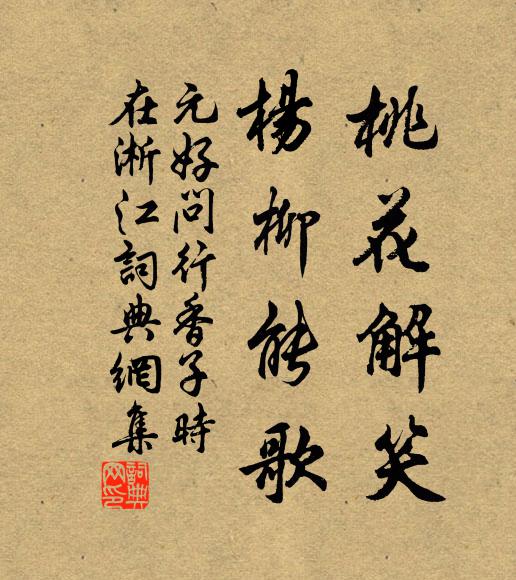 桃花解笑
楊柳能歌
元好問行香子時
在淅江詞典網集
詞典网印